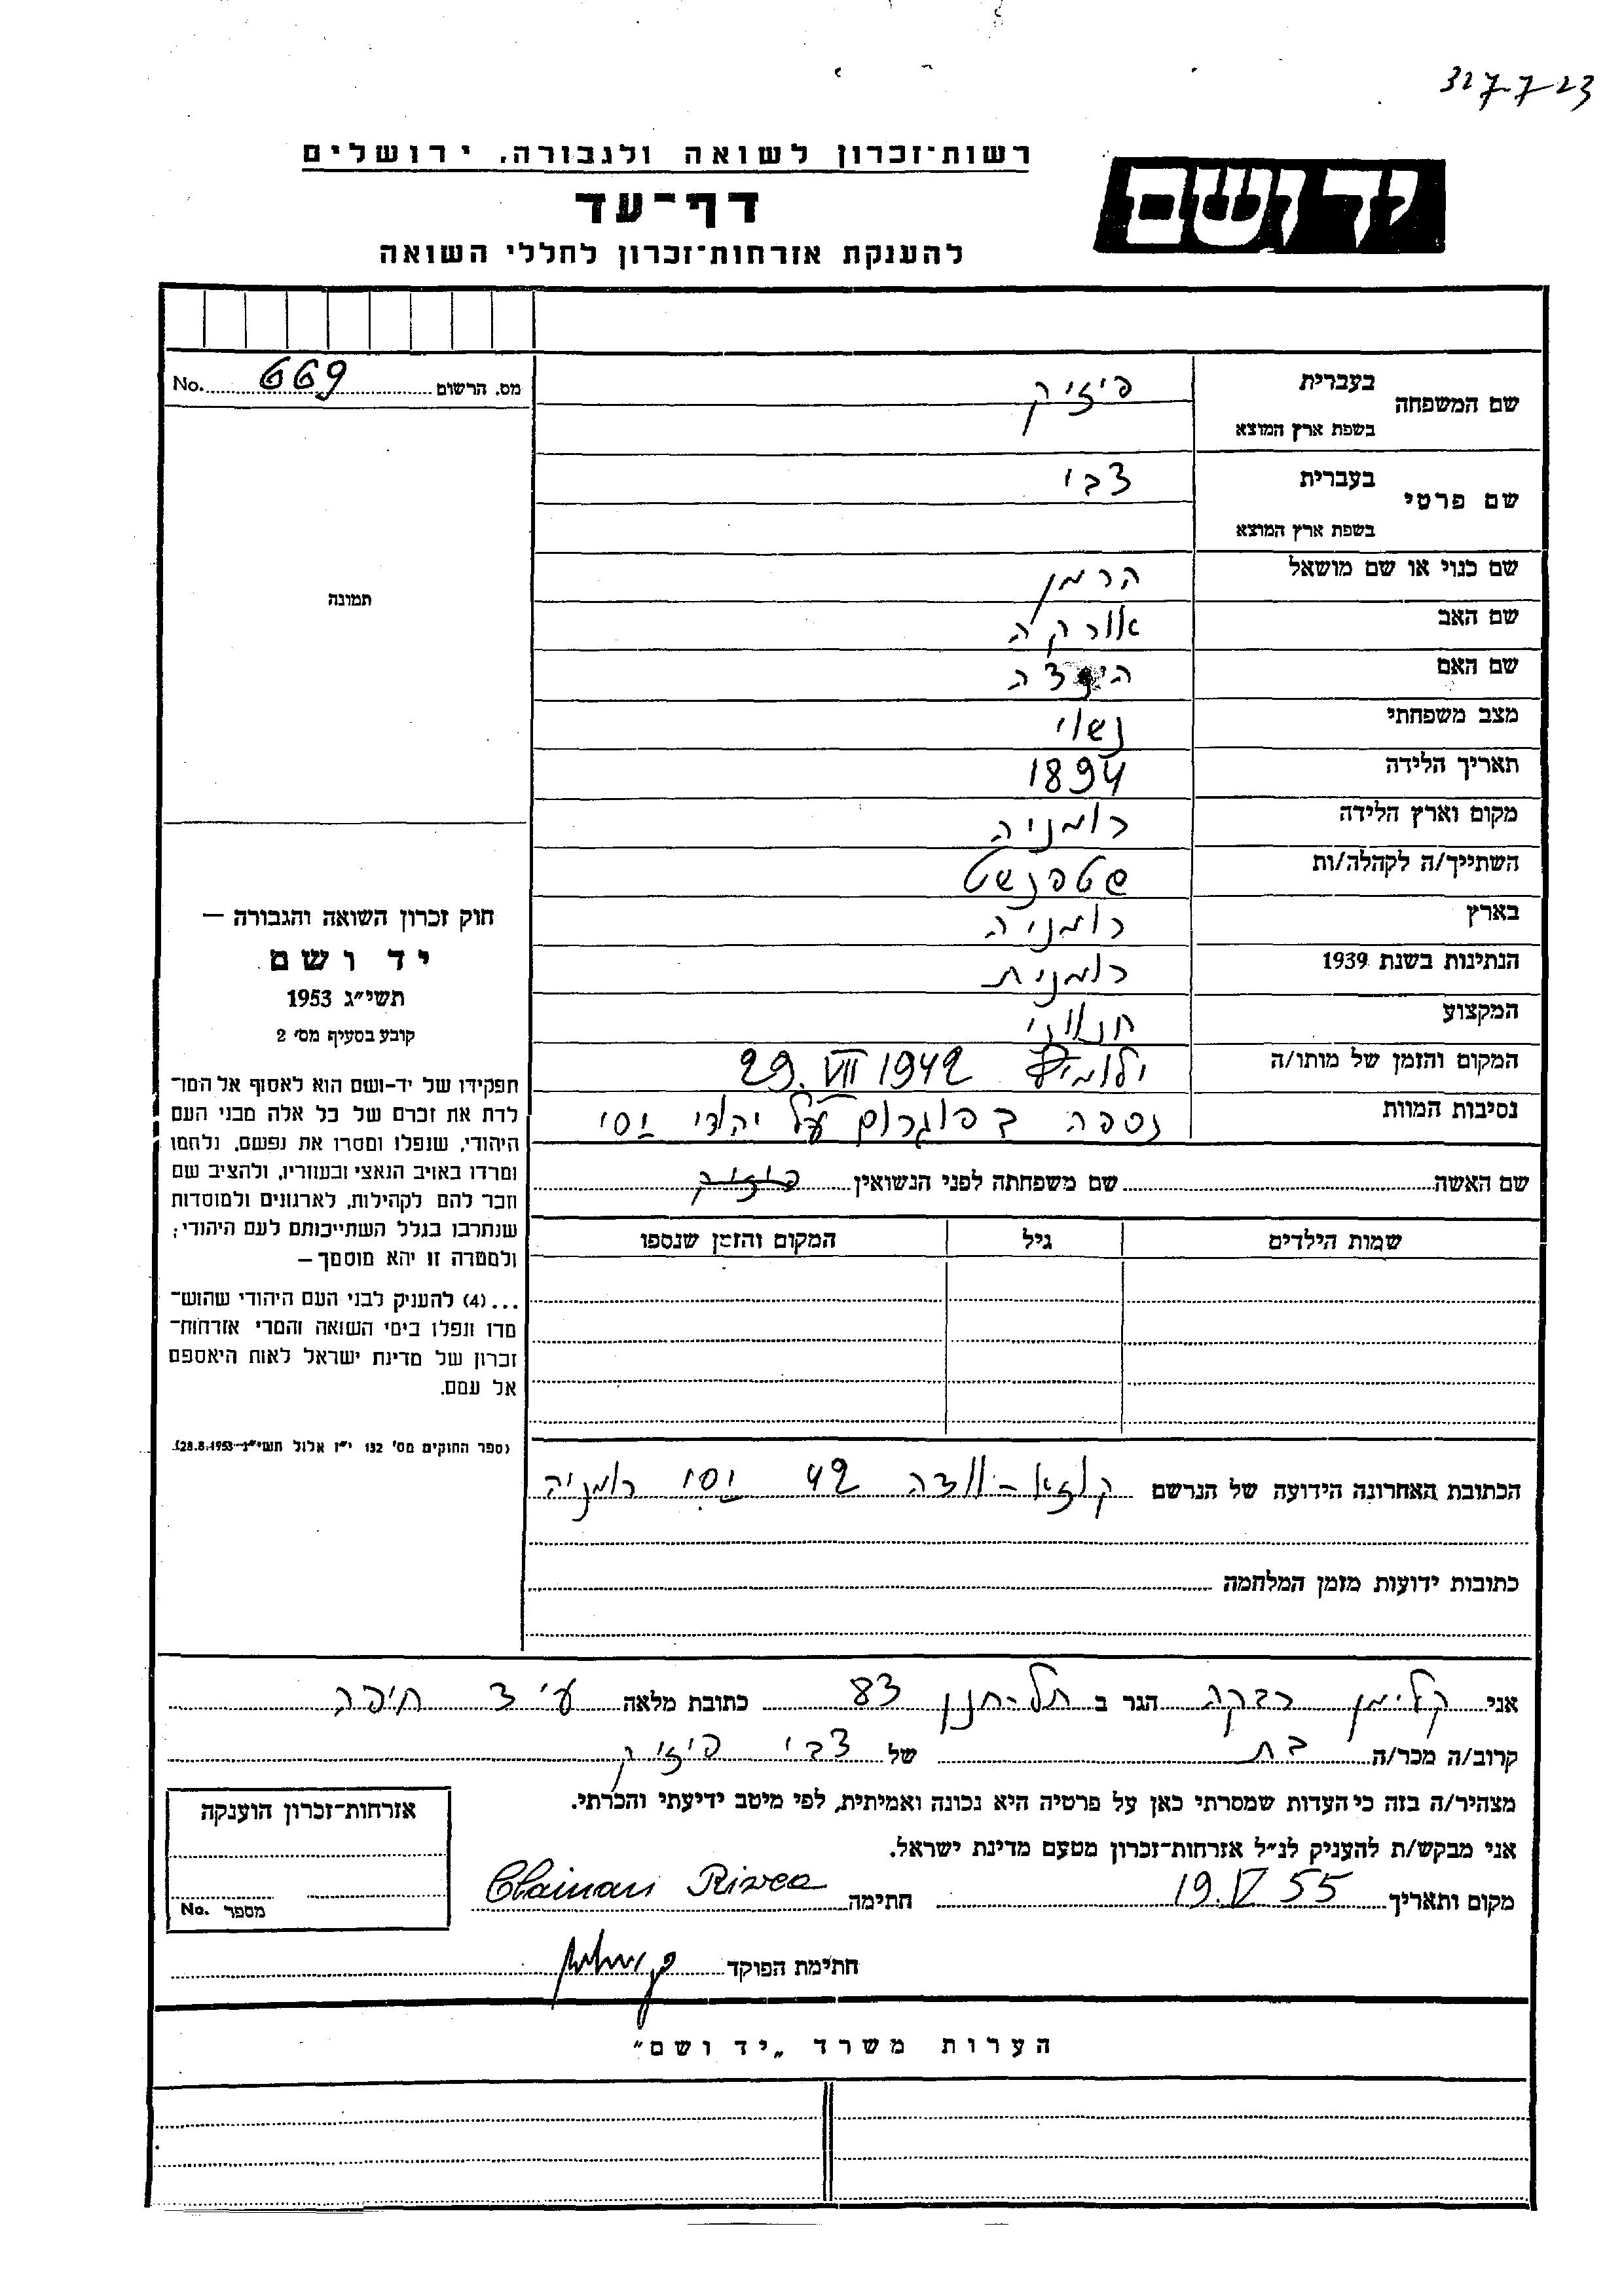 327-7-23
רשות־זכרון לשואה ולגבורה, ירושלים
יד ושם
דף־עד
להענקת אזרחות־זכרון לחללי השואה
מס. הרשום 669 No.
שם המשפחה בעברית פיזיק
בשפת ארץ המוצא
שם פרטי בעברית צבי
בשפת ארץ המוצא
שם כנוי או שם מושאל הרמן
תמונה
שם האב
שם האם
מצב משפחתי נשוי
תאריך הלידה 1894
מקום וארץ הלידה רומניה
השתייך/ה לקהלה/ות שטפנשט
בארץ רומניה
הנתינות בשנת 1939 רומנית
המקצוע חנווני
המקום והזמן של מותו/ה 29. VII 1942
נסיבות המוות נספה בפוגרום על יהודי יסי
שם האשה שם משפחתה לפני הנשואין פיזיק
שמות הילדים גיל המקום והזמן שנספו
חוק זכרון השואה והגבורה —
יד ושם
תשי״ג 1953
קובע בסעיף מס׳ 2
תפקידו של יד-ושם הוא לאסוף אל המו־
לדת את זכרם של כל אלה מבני העם
היהודי, שנפלו ומסרו את נפשם, נלחמו
ומרדו באויב הנאצי ובעוזריו, ולהציב שם
וזכר להם לקהילות, לארגונים ולמוסדות
שנחרבו בגלל השתייכותם לעם היהודי;
ולמטרה זו יהא מוסמך —
...(4) להעניק לבני העם היהודי שהוש־
מדו ונפלו בימי השואה והמרי אזרחות־
זכרון של מדינת ישראל לאות היאספם
אל עמם.
(ספר החוקים מס׳ 132 י״ז אלול תשי״ג 28.8.1953)
הכתובת האחרונה הידועה של הנרשם קוזא-וודה 42 יסי רומניה
כתובות ידועות מזמן המלחמה
אני קליימן רבקה הגר ב תל-חנן 83 כתובת מלאה ע״י חיפה
קרוב/ה מכר/ה בת של צבי פיזיק
מצהיר/ה בזה כי העדות שמסרתי כאן על פרטיה היא נכונה ואמיתית, לפי מיטב ידיעתי והכרתי.
אני מבקש/ת להעניק לנ״ל אזרחות־זכרון מטעם מדינת ישראל.
מקום ותאריך 19.V 55 חתימה Claiman Rivca
אזרחות־זכרון הוענקה
מספר No.
חתימת הפוקד
הערות משרד „יד ושם״